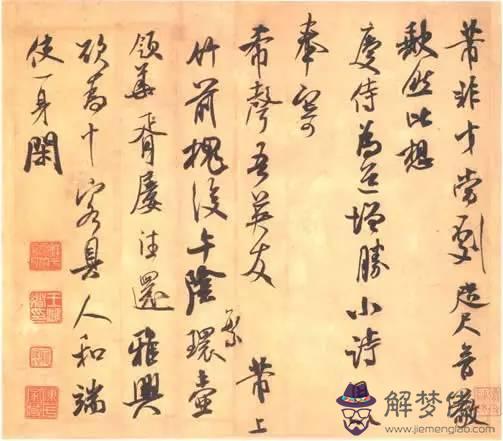 芾非才當劇咫尺音敬
缺然比想
慶侍為道增勝小詩
奉寄
希聲吾英友 芾上
繁
竹前槐後午陰環壺
領華胥屢往還雅興
欲為十客具人和端
使一身閑
解梦佬
www.jiemenglao.com